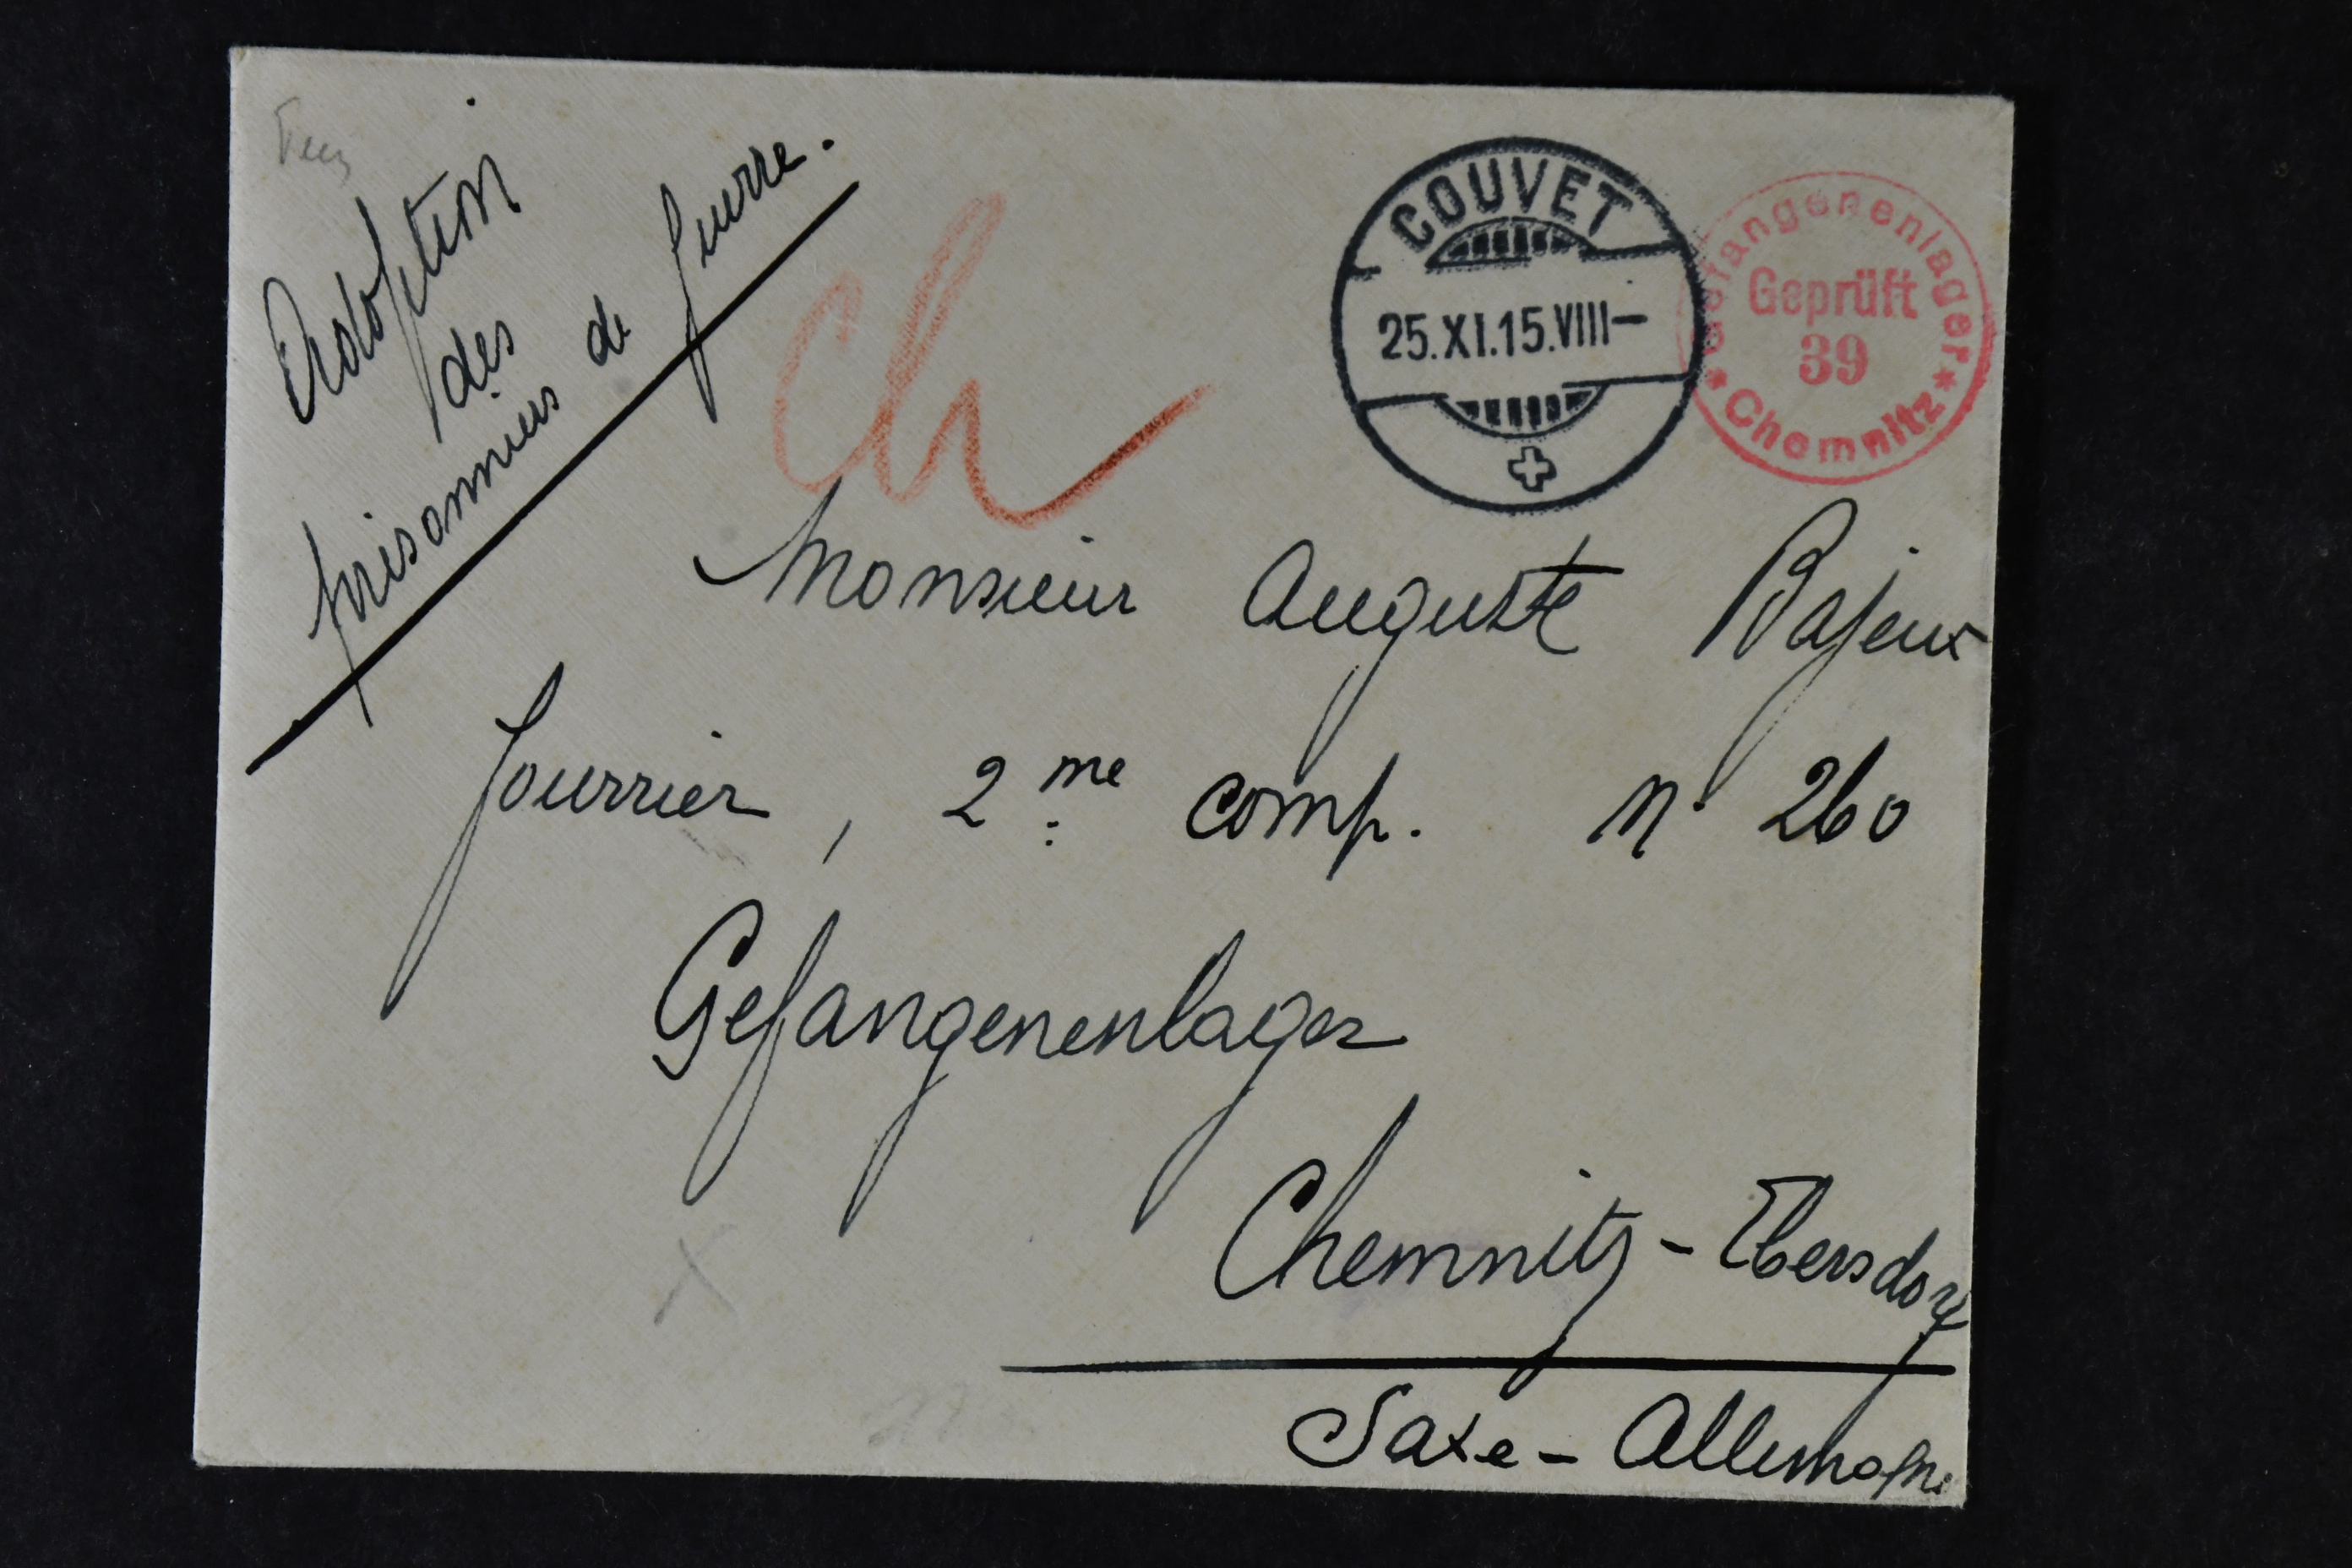 Adoption
des
prisonniers de guerre.
Ch
COUVET
25.XI.15.VIII-
Gefangenenlager
Geprüft
39
* Chemnitz *
Monsieur Auguste Bajeux
fourrier, 2me comp. n° 260
Gefangenenlager
Chemnitz - Ebersdorf
Saxe - Allemagne